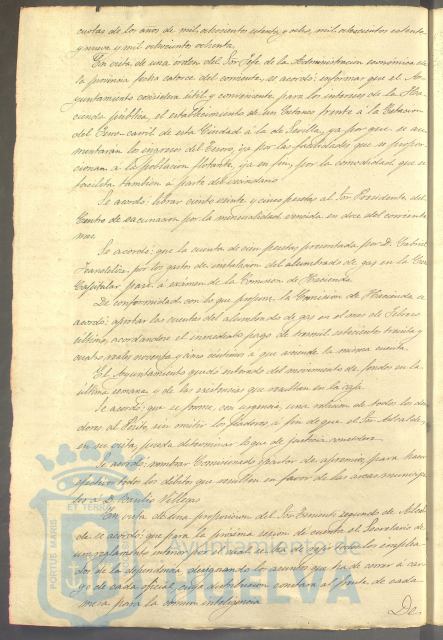 cuotas de los años de mil ochocientos setenta y ocho, mil ochocientos setenta
y nueve y mil ochocientos ochenta.
En vista de una orden del Sor Jefe de la Administracion económica de
la provincia fecha catorce del corriente, se acordó: informar que el A-
yuntamiento considera útil y conveniente para los intereses de la Ha-
cienda pública, el establecimiento de un Estanco frente á la Estacion
del Ferro-carril de esta Ciudad á la de Sevilla, ya por que se au-
mentaran los ingresos del Tesoro, ya por las facilidades que se propor-
cionan á la poblacion flotante, ya en fin, por la comodidad que se
facilita tambien á parte del vecindario.
Se acordó: librar ciento veinte y cinco pesetas al Sor Presidente del
Centro de vacunacion por la mensualidad vencida en doce del corriente
mes.
Se acordó: que la cuenta de cien pesetas presentada por D. Gabriel
por los gastos de instalacion del alumbrado de gas en la Casa
Capitular pase á exámen de la Comision de Hacienda.
De conformidad con lo que propone la Comision de Hacienda se
acordó: aprobar las cuentas del alumbrado de gas en el mes de Febrero
último, acordandose el inmediato pago de tres mil setecientos treinta y
cuatro reales noventa y cinco céntimos á que asciende la misma cuenta.
El Ayuntamiento quedó enterado del movimiento de fondos en la
última semana y de las existencias que resultan en la caja.
Se acordó: que se forme, con urgencia, una relacion de todos los deu-
dores al Pósito, sin omitir los fiadores á fin de que el Sor Alcalde,
en su vista, pueda determinar lo que de justicia considere.
Se acordó: nombrar Comisionado ejecutor de apremio, para hacer
efectivo todos los debitos que resulten en favor de las arcas municipa-
les á D. Braulio Villegas
En vista de una proposicion del Sor Teniente segundo de Alcal-
de se acordó: que para la próxima sesion dé cuenta el Secretario de
un reglamento interior por el cual se ha de regir todos los emplea-
dos de la dependencia, designando los asuntos que ha de correr á car-
go de cada oficial, cuya distribucion constará al frente de cada
mesa para la comun inteligencia
De
PORTUS MARIS
ET TERRAE
Ayuntamiento de
HUELVA